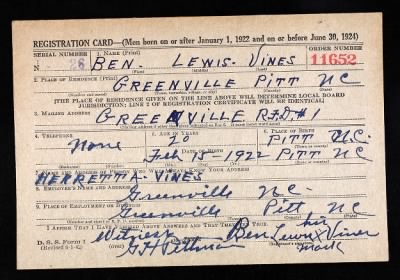 REGISTRATION CARD—(Men born on or after January 1, 1922 and on or before June 30, 1924)
SERIAL NUMBER 1. NAME (Print) ORDER NUMBER
N 26 BEN. LEWIS. VINES 11652
(First) (Middle) (Last)
2. PLACE OF RESIDENCE (Print)
GREENVILLE PITT N.C.
[THE PLACE OF RESIDENCE GIVEN ON THE LINE ABOVE WILL DETERMINE LOCAL BOARD
JURISDICTION; LINE 2 OF REGISTRATION CERTIFICATE WILL BE IDENTICAL]
3. MAILING ADDRESS
GREENVILLE R.F.D. #1
4. TELEPHONE 5. AGE IN YEARS 6. PLACE OF BIRTH
None PITT N.C.
DATE OF BIRTH
Feb 15-1922 PITT N.C.
VINES
8. EMPLOYER'S NAME AND ADDRESS
Greenville N.C.
9. PLACE OF EMPLOYMENT OR BUSINESS
Greenville Pitt N.C.
I AFFIRM THAT I HAVE VERIFIED ABOVE ANSWERS AND THAT THEY ARE TRUE.
Witness his
Pittman Ben Lewis X Vines
D. S. S. Form 1 mark